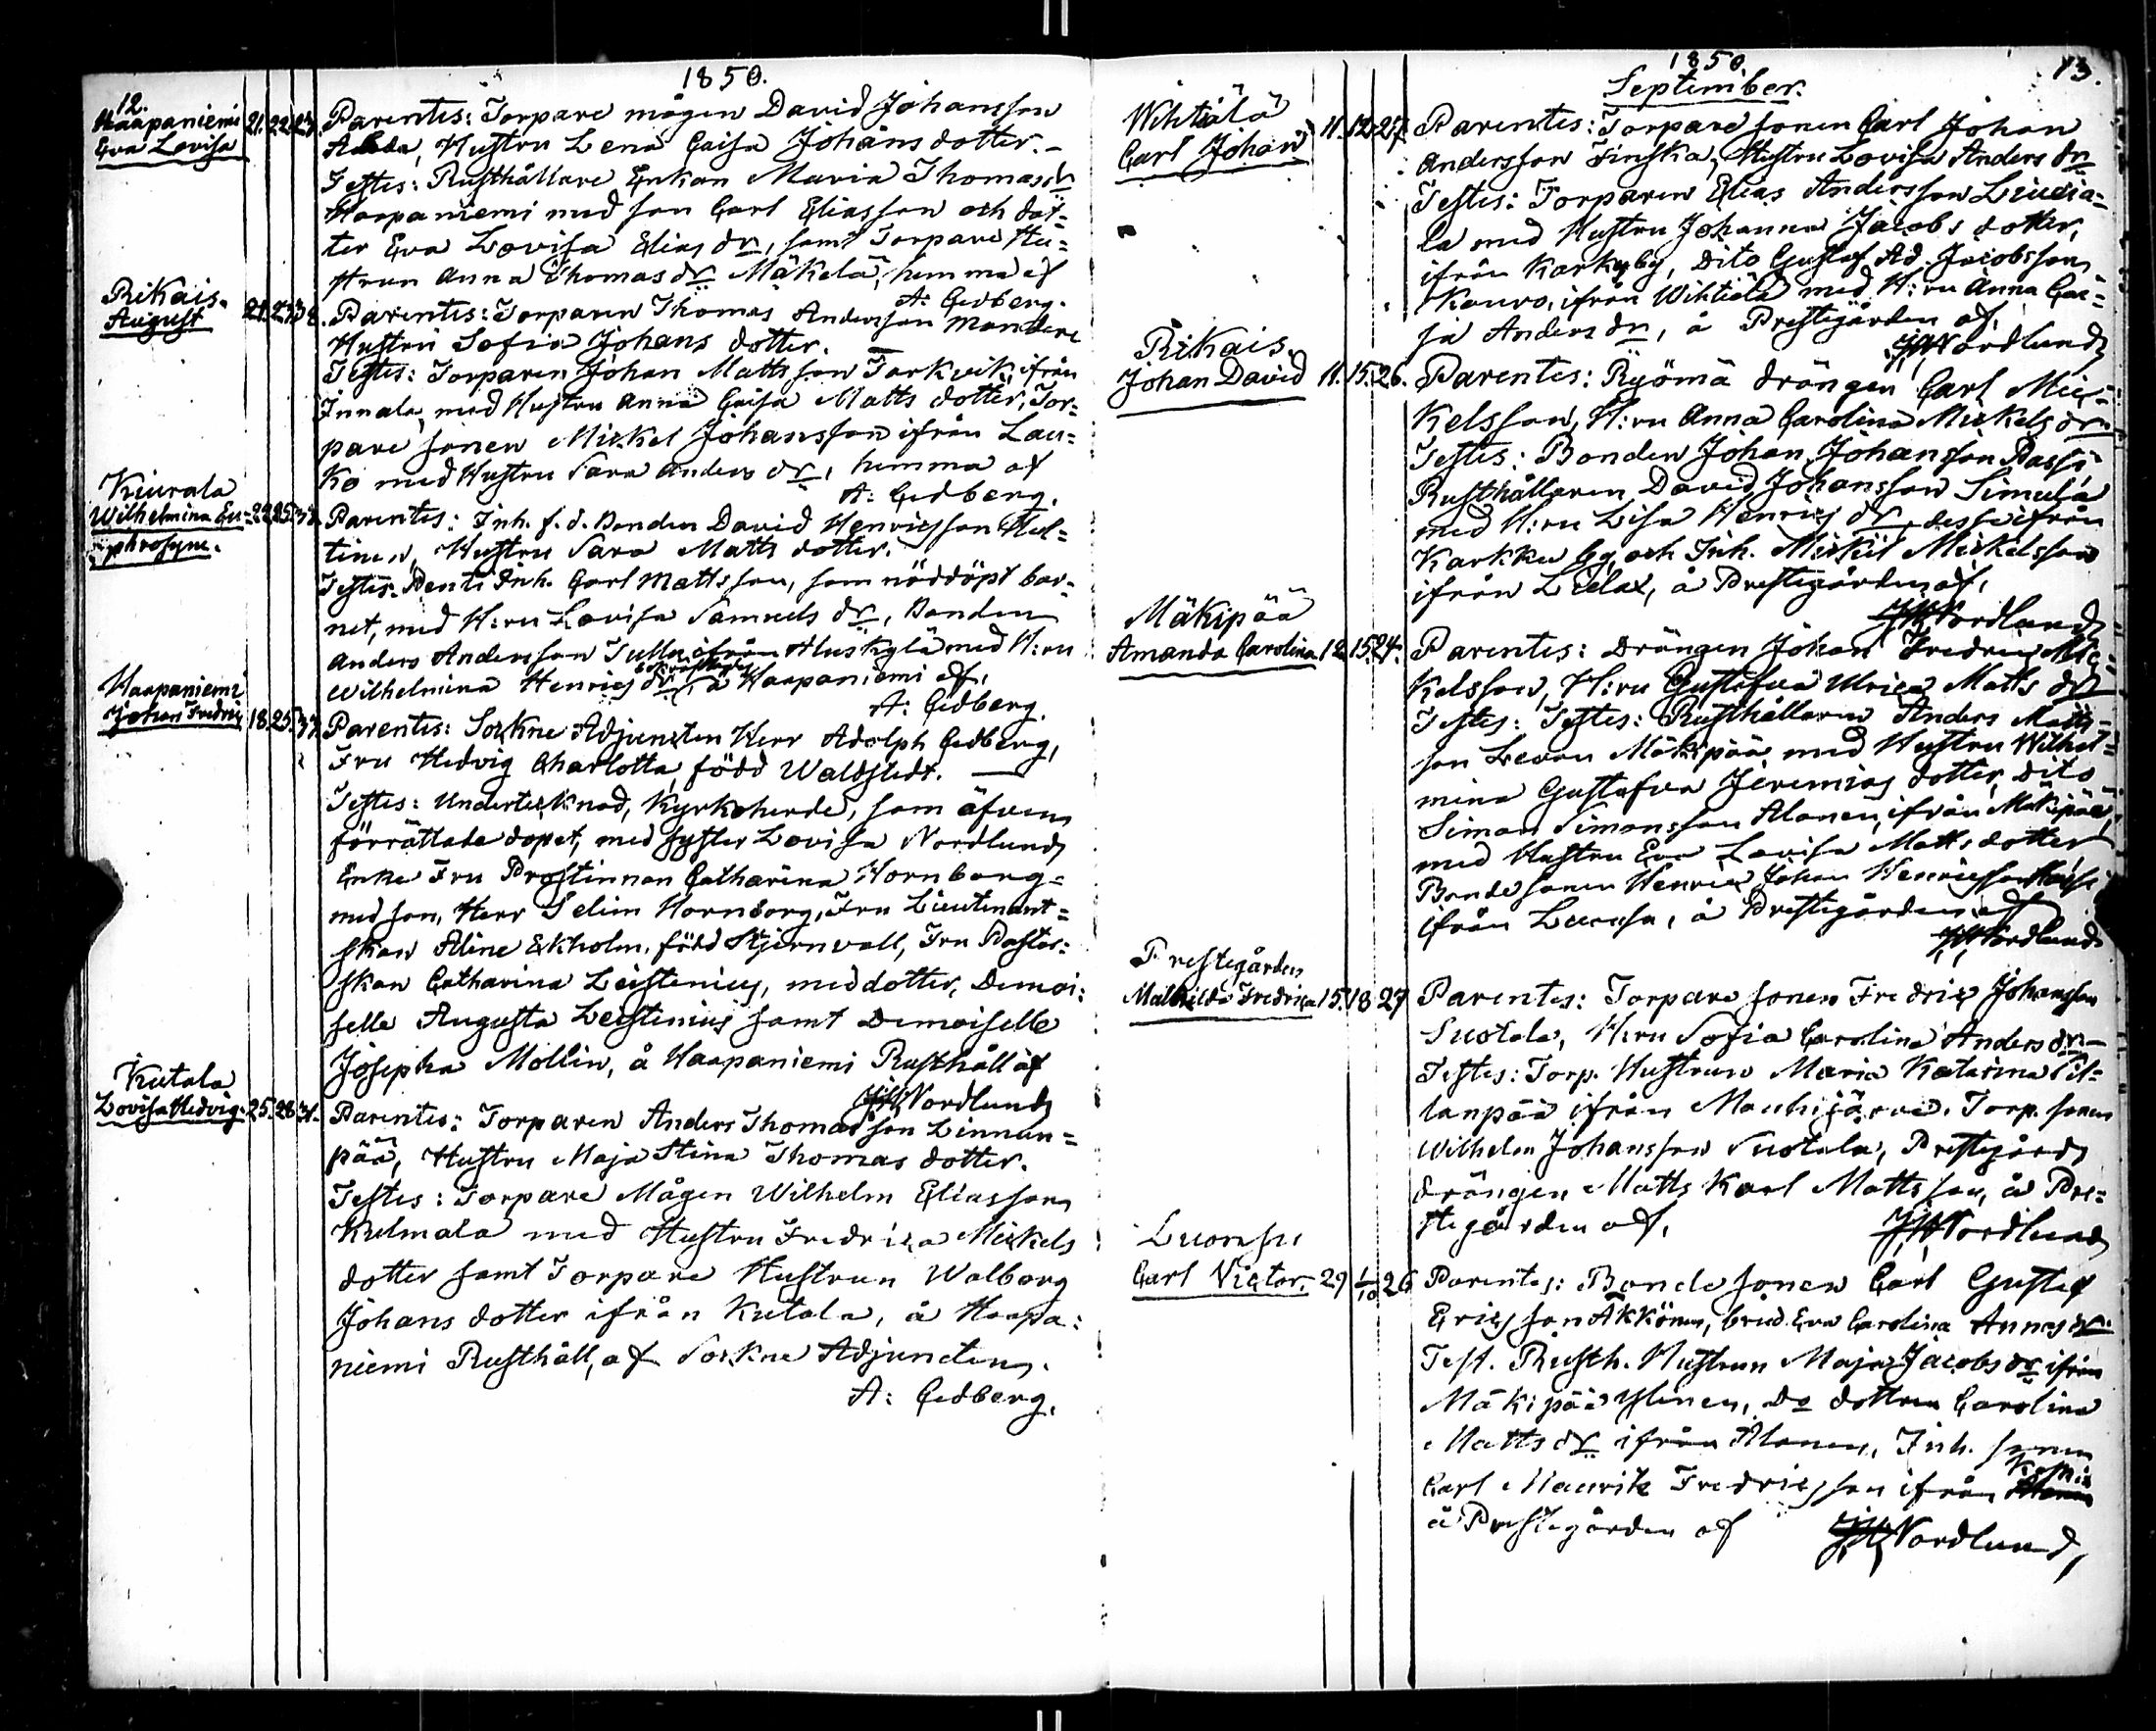 12.
1850.
Haapaniemi
Eva Lovisa
21. 22. 23.
Parentes: Torpare mågen David Johansson
Hustru Lena Caisa Johans dotter.-
Testes: Rusthållare Enkan Maria Thomas dr
Haapaniemi med son Carl Eliasson och dot=
ter Eva Lovisa Elias dr, samt Torpare Hu=
strun Anna Thomas dr Mäkelä, hemma af
A: Cedberg.
Rikais.
August
21. 23. 38.
Parentes: Torparen Thomas Andersson Mondere
Hustru Sofia Johans dotter.
Testes: Torparen Johan Mattsson Torkvik, ifrån
Innala, med Hustru Anna Caisa Matts dotter, Tor=
pare sonen Mickel Johansson ifrån Lau=
ko med Hustru Sara Anders dr, hemma af
A: Cedberg.
Kiurala
Wilhelmina Eu=
phrosyne.
22. 25. 37.
Parentes: Inh. f. d. Bonden David Henricsson Hel=
tinen, Hustru Sara Matts dotter.
Testes: Penti Inh. Carl Mattsson, som nöddöpt bar=
net, med H:ru Lovisa Samuels dr, Bonden
Anders Andersson Tulla ifrån Huskylä med H:ru
Wilhelmina Henrics dr, å Haapaniemi af,
A: Cedberg.
Haapaniemi
Johan Fredric
18. 25. 37.
Parentes: Sockne Adjuncten Herr Adolph Cedberg,
Fru Hedvig Charlotta, född Waldstedt. —
Testes: Undertecknad, Kyrkoherde, som äfven
förrättade dopet, med syster Lovisa Nordlund,
Enke Fru Prostinnan Catharina Hornborg=
med son, Herr Selim Hornborg, Fru Lieutenant=
skan Aline Ekholm, född Stjernvall, Fru Pastor=
skan Catharina Leistenius, med dotter, Demoi=
selle Augusta Leistenius samt Demoiselle
Josepha Mollin, å Haapaniemi Rusthåll af
Nordlund
Kutala
Lovisa Hedvig.
25. 28. 31.
Parentes: Torparen Anders Thomasson Linnan=
pää, Hustru Maja Stina Thomas dotter.
Testes: Torpare Mågen Wilhelm Eliasson
Kulmala med Hustru Fredrica Mickels
dotter samt Torpare Hustrun Walborg
Johans dotter ifrån Kutala, å Haapa=
niemi Rusthåll, af Sockne Adjuncten,
A: Cedberg.
1850.
13.
September.
Wihtiälä
Carl Johan
11. 12. 27.
Parentes: Torpare sonen Carl Johan
Andersson Finska, Hustru Lovisa Anders dr
Testes: Torparen Elias Andersson Liucia=
la med Hustru Johanna Jacobs dotter,
ifrån Karkuby, Dito Gustaf Ad. Jacobsson
Kouvo, ifrån Wihtiälä med H:ru Anna Cai=
sa Anders dr, å Prestegården af,
Nordlund
Rikais.
Johan David
11. 15. 26.
Parentes: Ryömä drängen Carl Mic=
kelsson, H:ru Anna Carolina Mickels dr
Testes: Bonden Johan Johansson Passi
Rusthållaren David Johansson Simula
med H:ru Lisa Henrics dr, desse ifrån
Karkku by, och Inh. Mickel Mickelsson
ifrån Lielax, å Prestegården af,
Nordlund
Mäkipää
Amanda Carolina
12. 15. 24.
Parentes: Drängen Johan Fredric Mic=
kelsson, H:ru Gustafva Ulrica Matts dr
Testes: Testes: Rusthållaren Anders Matts=
son Mäkipää med Hustru Wilhel=
mina Gustafva Jeremias dotter, Dito
Simon Simonsson Alanen, ifrån Mäkipää,
med Hustru Eva Lovisa Matts dotter
Bonde sonen Henric Johan Henricsson
ifrån Luonsu, å Prestegården af
Nordlund
Prestegården
Mathilda Fredrica
15. 18. 27
Parentes: Torpare sonen Fredric Johansson
Suotala, H:ru Sofia Carolina Anders dr-
Testes: Torp. Hustrun Maria Katarina Pil=
lanpää ifrån Mouhijärvi, Torp. sonen
Wilhelm Johansson Suotala, Prestegårds
drängen Matts Karl Mattsson, å Pre=
stegården af,
Nordlund
Luonsu
Carl Victor.
29 1/10 26
Parentes: Bonde sonen Carl Gustaf
Ericsson Äkkönen, brud. Eva Carolina
Test. Rusth. Hustrun Maja Jacobs dr ifrån
Mäkipää Ylinen, Do dottren Carolina
Matts dr ifrån Alanen, Inh. sonen
Carl Mauritz Fredricsson ifrån
å Prestegården af
Nordlund,